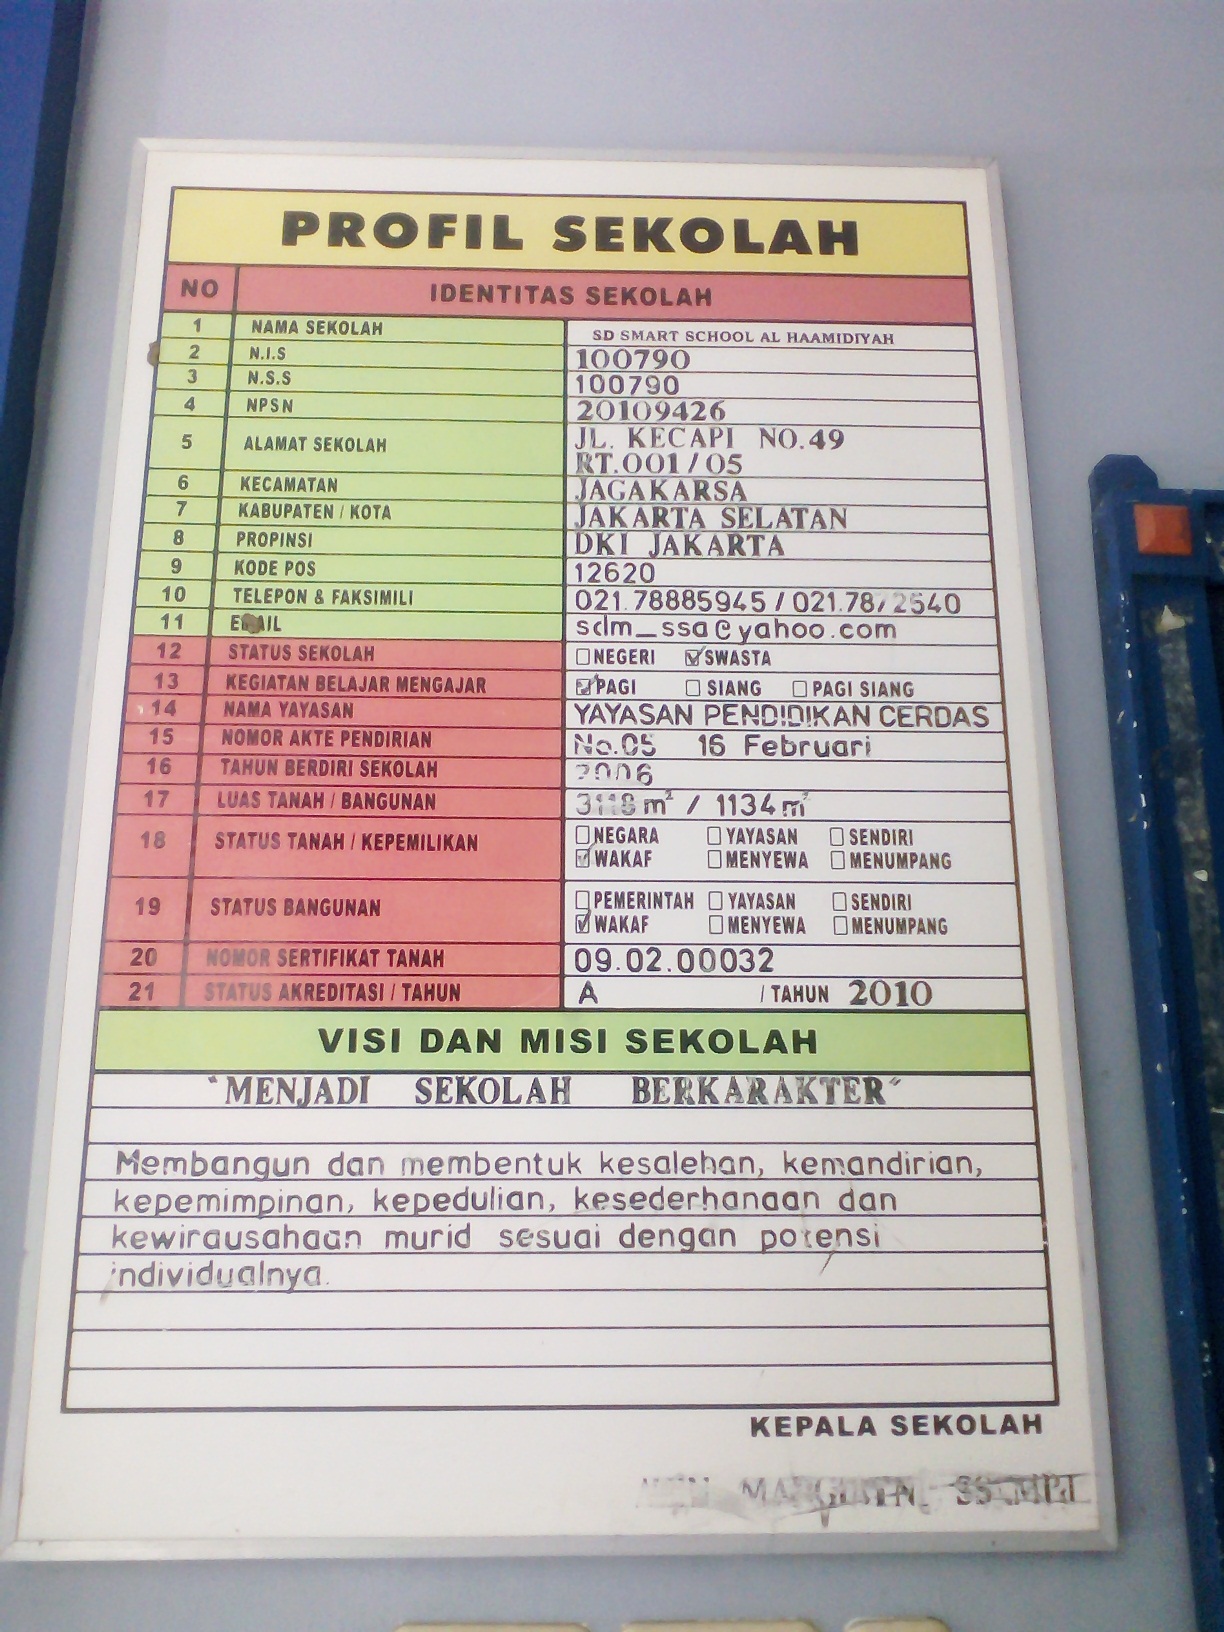 PROFIL SEKOLAH
NO IDENTITAS SEKOLAH
1 NAMA SEKOLAH SD SMART SCHOOL AL HAAMIDIYAH
2 N.I.S 100790
3 N.S.S 100790
4 NPSN 20109426
5 ALAMAT SEKOLAH JL. KECAPI NO.49
RT.001/05
6 KECAMATAN JAGAKARSA
7 KABUPATEN / KOTA JAKARTA SELATAN
8 PROPINSI DKI JAKARTA
9 KODE POS 12620
10 TELEPON & FAKSIMILI 021.78885945 / 021.7872540
11 EMAIL sdm_ssa@yahoo.com
12 STATUS SEKOLAH NEGERI SWASTA
13 KEGIATAN BELAJAR MENGAJAR PAGI SIANG PAGI SIANG
14 NAMA YAYASAN YAYASAN PENDIDIKAN CERDAS
15 NOMOR AKTE PENDIRIAN No.05 16 Februari
16 TAHUN BERDIRI SEKOLAH 2006
17 LUAS TANAH / BANGUNAN 3118 m² / 1134 m²
18 STATUS TANAH / KEPEMILIKAN NEGARA YAYASAN SENDIRI
WAKAF MENYEWA MENUMPANG
19 STATUS BANGUNAN PEMERINTAH YAYASAN SENDIRI
WAKAF MENYEWA MENUMPANG
20 NOMOR SERTIFIKAT TANAH 09.02.00032
21 STATUS AKREDITASI / TAHUN A / TAHUN 2010
VISI DAN MISI SEKOLAH
"MENJADI SEKOLAH BERKARAKTER"
Membangun dan membentuk kesalehan, kemandirian,
kepemimpinan, kepedulian, kesederhanaan dan
kewirausahaan murid sesuai dengan potensi
individualnya.
KEPALA SEKOLAH